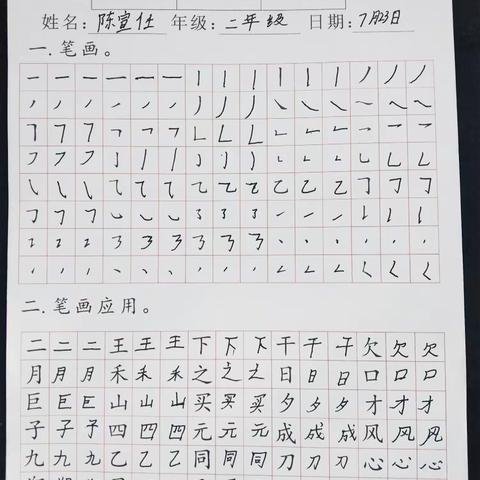 姓名: 陈宣仕 年级: 二年级 日期: 7月23日
一.笔画。
二.笔画应用。
二二二王王王下下下干干干欠欠欠
月月月禾禾禾之之之日日日口口口
巨巨巨山山山买买买夕夕夕才才才
子子子四四四元元元成成成风风风
九九九乙乙乙同同同刀刀刀心心心